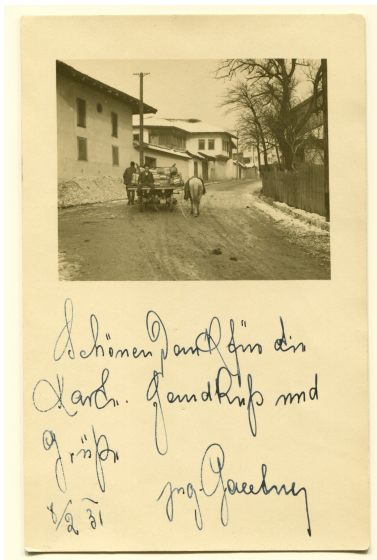 Schönen Dank für die
Karte. Handkuß und
Grüße
Ing.
8/2 31